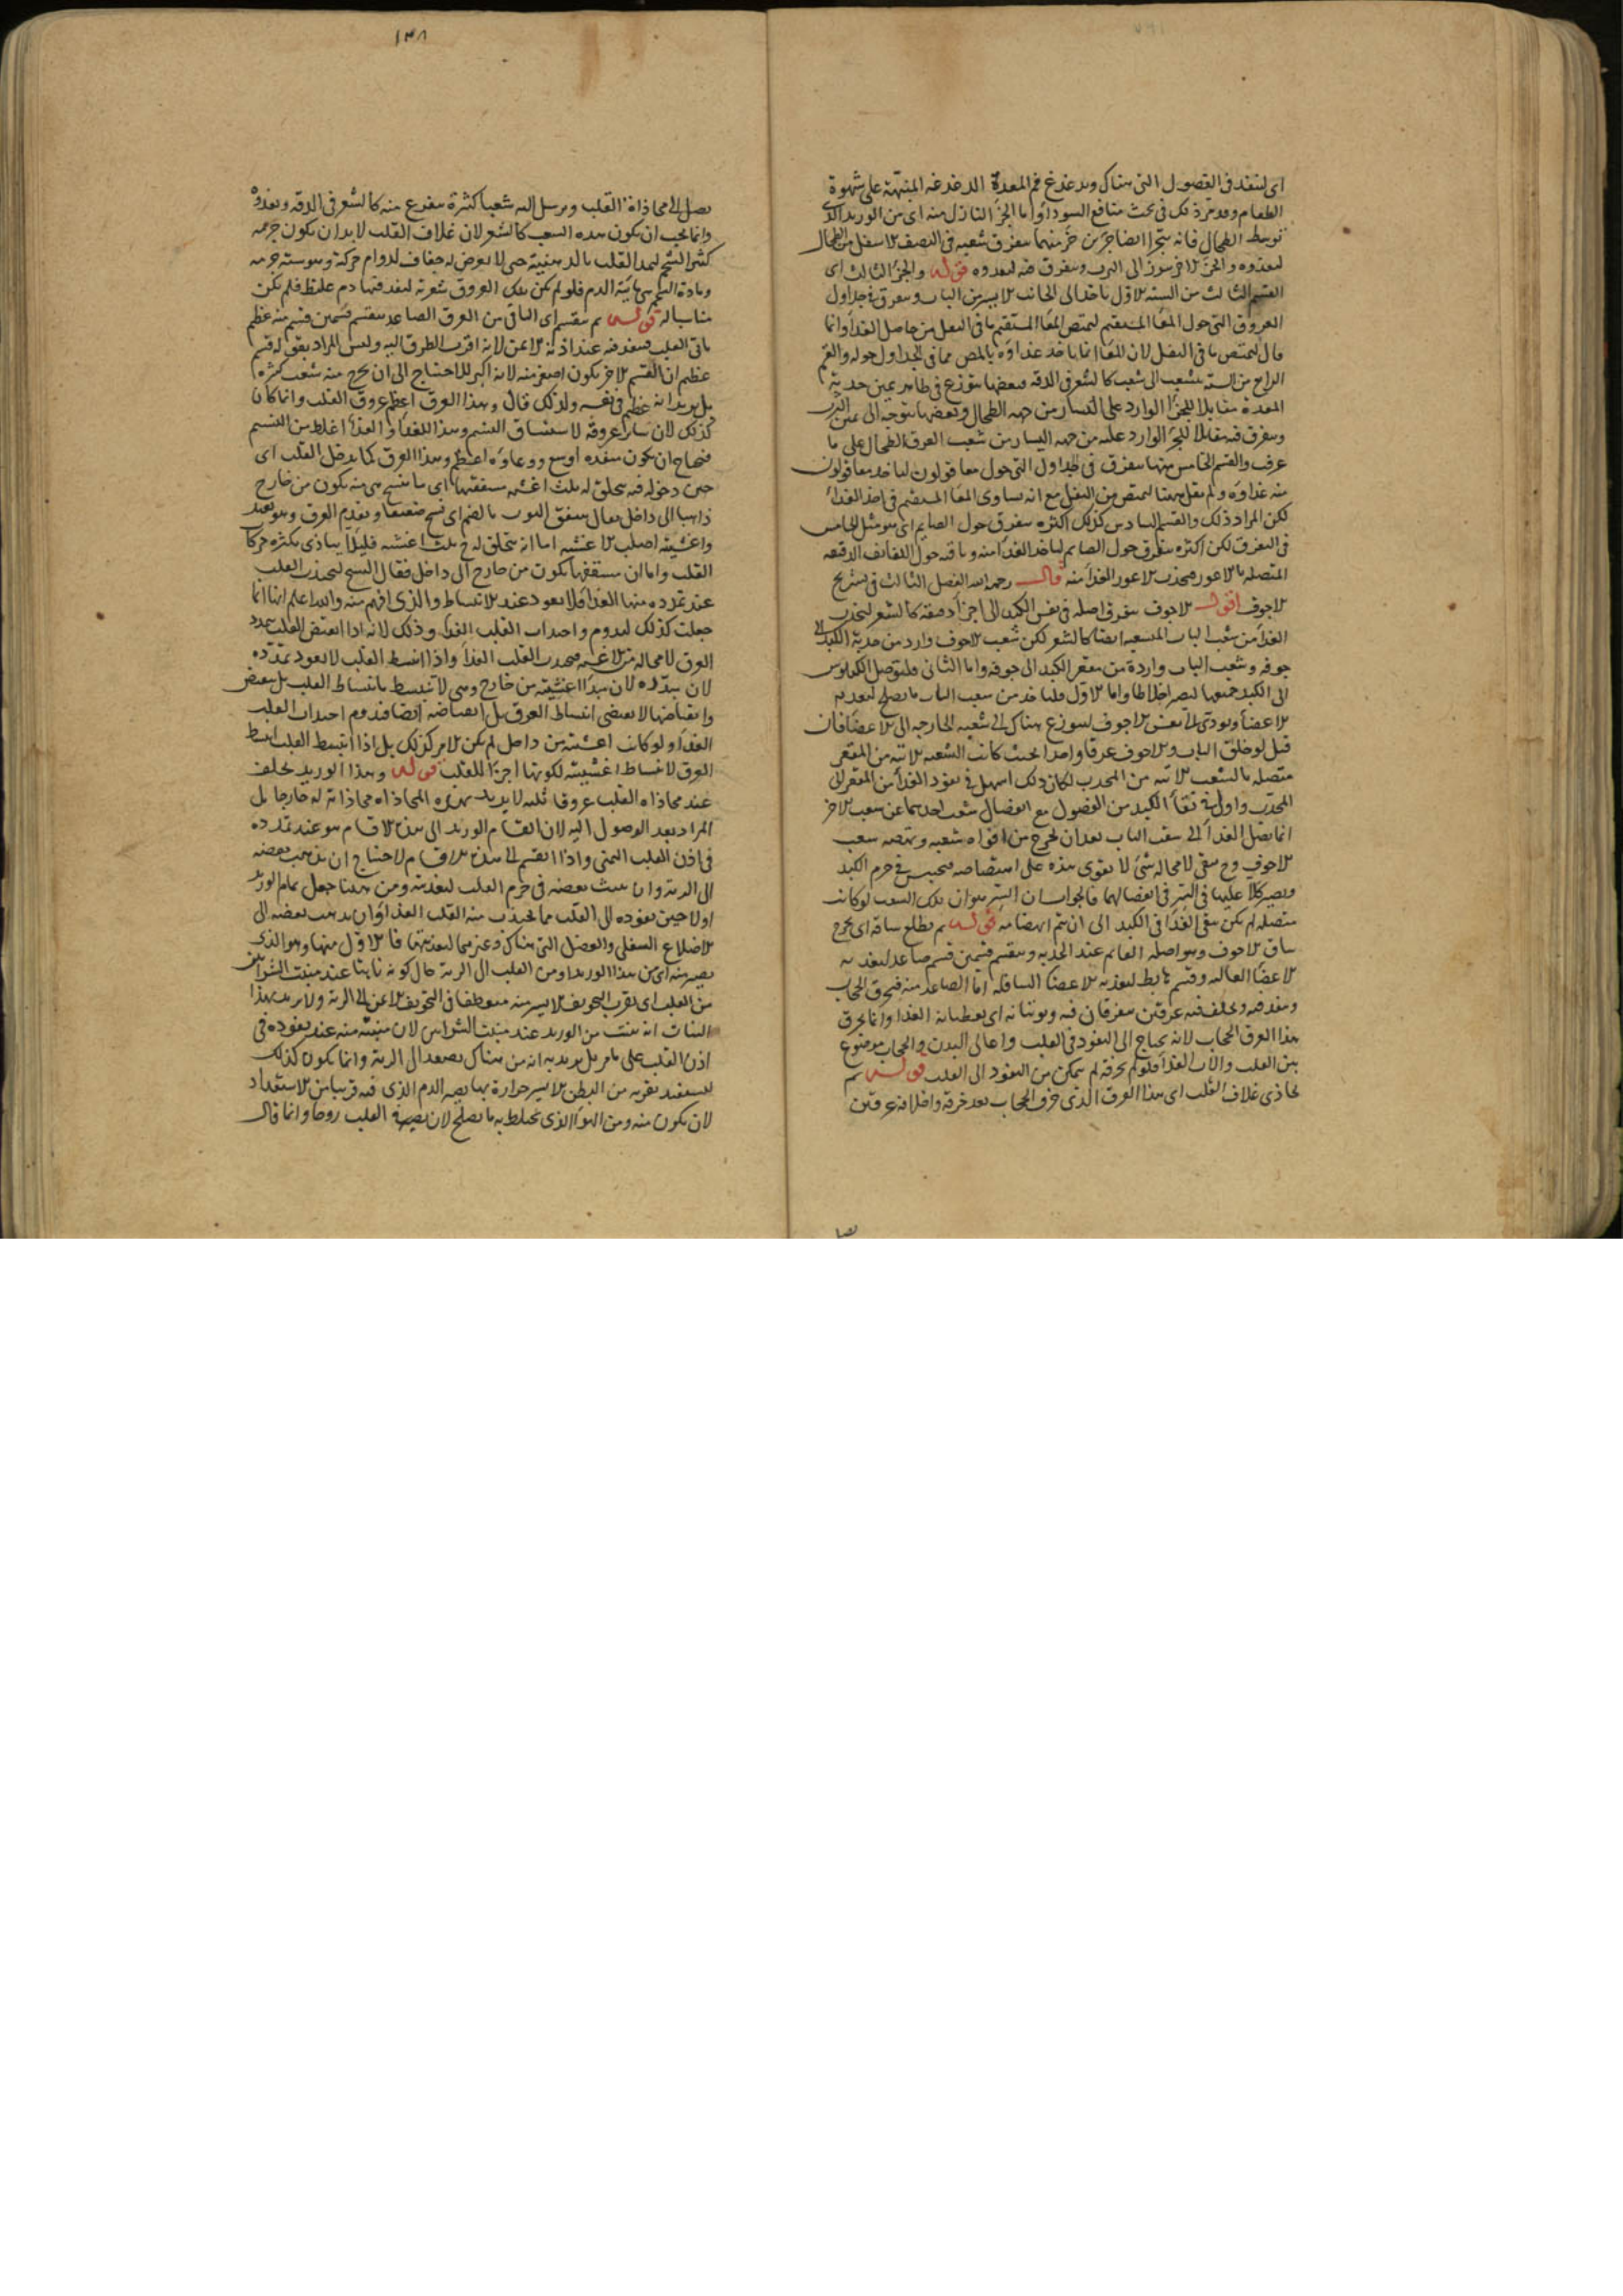 اى لتنفذ فى الفصول التى هناك ويدغدغ فم المعدة الدغدغة المنبهة على شهوة
الطعام وقد مر ذلك فى بحث منافع السوداء واما الجزء النازل منه اى من الوريد الذى
توسط الطحال فانه يتجزأ ايضا جزئين جزء منهما يتفرق شعبه فى النصف الاسفل من الطحال
ليغذوه والجزء الاخر يبرز الى الثرب ويتفرق فيه ليغذوه قوله والجزء الثالث اى
القسم الثالث من الستة الاول ياخذ الى الجانب الايسر من الباب ويتفرق فى جداول
العروق التى حول المعا المستقيم ليمتص المعا المستقيم ما فى الثفل من حاصل الغذاء وانما
قال ليمتص ما فى الثفل لان المعا انما ياخذ غذاؤه بالمص مما فى الجداول حوله والقسم
الرابع من الستة يتشعب الى شعب كالشعر فى الدقة فبعضها يتوزع فى ظاهر يمين حدبة
المعدة مقابلا للجزء الوارد على اليسار من جهة الطحال وبعضها يتوجه الى يمين الثرب
ويتفرق فيه مقابلا للجزء الوارد عليه من جهة اليسار من شعب العرق الطحالى على ما
عرفت والقسم الخامس منها يتفرق فى الجداول التى حول معا قولون لياخذ معا قولون
منه غذاؤه ولم يقل ههنا ليمتص من الثفل مع انه يساوى المعا المستقيم فى اخذ الغذاء
لكن المراد ذلك والقسم السادس كذلك اكثره يتفرق حول الصايم اى هو مثل الخامس
فى التفرق لكن اكثره يتفرق حول الصايم لياخذ الغذاء منه وباقيه حول اللفايف الدقيقة
المتصلة بالاعور فيجذب الاعور الغذاء منه قال رحمه الله الفصل الثالث فى تشريح
الاجوف اقول الاجوف يتفرق اصله فى نفس الكبد الى اجزاء دقيقة كالشعر ليجذب
الغذاء من شعب الباب المتشعبة ايضا كالشعر لكن شعب الاجوف واردة من حدبة الكبد الى
جوفه وشعب الباب واردة من مقعر الكبد الى جوفه واما الثانى فليتوصل الكيلوس
الى الكبد جميعها ليصير اخلاطا واما الاول فلياخذ من شعب الباب ما يصلح لتغذية
الاعضاء ويؤدى الى الاجوف ليتوزع هناك الى شعبه الخارجة الى الاعضاء فان
قيل لو خلق الباب والاجوف عرقا واحدا بحيث كانت الشعبة الاتية من المقعر
متصلة بالشعب الاتية من المحدب لكان ذلك اسهل فى نفوذ الغذاء من المقعر الى
المحدب واولى فى نقاء الكبد من الفضول مع انفصال شعب احدهما عن شعب الاخر
انما يصل الغذاء الى شعب الباب بعد ان يخرج من افواه شعبه ويمتصه شعب
الاجوف وح يبقى لا محالة شئ لا يقوى هذه على امتصاصه فيحتبس فى جرم الكبد
ويصير كلا عليها فى السر فى انفصالهما فالجواب ان السر هو ان تلك الشعب لو كانت
متصلة لم يكن يبقى الغذاء فى الكبد الى ان يتم انهضامه قوله ثم يطلع ساقه اى يخرج
ساق الاجوف وهو اصله القائم عند الحدبة وينقسم قسمين قسم صاعد لتغذية
الاعضاء العالية وقسم هابط لتغذية الاعضاء السافلة اما الصاعد منه فيخرق الحجاب
وينفذ فيه ويخلف فيه عرقين يتفرقان فيه ويوتيانه اى يعطيانه الغذاء وانما يخرق
هذا العرق الحجاب لانه يحتاج الى النفوذ فى القلب واعالى البدن والحجاب موضوع
بين القلب والات الغذاء فلو لم يخرقه لم يتمكن من النفوذ الى القلب قوله ثم
يحاذى غلاف القلب اى هذا العرق الذى خرق الحجاب بعد خرقه واخلافه عرقين
١٣٨
يصل الى محاذاة القلب ويرسل اليه شعبا كثيرة يتفرع منه كالشعر فى الدقة ويغذوه
وانما يجب ان يكون هذه الشعب كالشعر لان غلاف القلب لا بد ان يكون جرمه
كثير الشحم ليمد القلب بالدهنية حتى لا يعرض له جفاف لدوام حركته ويبوسة جرمه
ومادة الشحم هى مائية الدم فلو لم يكن تلك العروق شعرية لنفذ فيها دم غليظ فلم يكن
مناسبا له قوله ثم ينقسم اى الباقى من العرق الصاعد ينقسم قسمين قسم منه عظيم
ياتى القلب فينفذ فيه عند اذنه الايمن لانه اقرب الطرق اليه وليس المراد بقوله قسم
عظيم ان القسم الاخر يكون اصغر منه لانه اكبر للاحتياج الى ان يخرج منه شعب كثيرة
بل يريد انه عظيم فى نفسه ولذلك قال وهذا العرق اعظم عروق القلب وانما كان
كذلك لان ساير عروقه لاستنشاق النسيم وهذا للغذاء والغذاء اغلظ من النسيم
فيحتاج ان يكون منفذه اوسع ووعاؤه اعظم وهذا العرق كما يدخل القلب اى
حين دخوله فيه يتخلق له ثلث اغشية مسقفها اى ما ينسج هى منه يكون من خارج
ذاهبا الى داخل يقال سفق الثوب بالضم اى نسج صفيقا وتقدم العرق وهو بعيد
واغشيته اصلب الاغشية اما انه يتخلق له ثلث اغشية فلئلا يتاذى بكثرة حركات
القلب واما ان مسقفها يكون من خارج الى داخل فقال الشيخ ليجتذب القلب
عند تمدده منها الغذاء فلا يعود عند الانبساط والذى افهم منه والله اعلم انها انما
جعلت كذلك ليدوم واجتذاب القلب الغذاء وذلك لانه اذا انقبض القلب تمدد
العرق لا محالة من الاغشية فيجذب القلب الغذاء واذا انبسط القلب لا يعود تمدده
لان تمدده لان مبدأ اغشيته من خارج وهى لا تنبسط بانبساط القلب بل ينقبض
وانقباضها لا يقتضى انبساط العرق بل انقباضه ايضا فيدوم اجتذاب القلب
الغذاء ولو كانت اغشيته من داخل لم يكن الامر كذلك بل اذا انبسط القلب انبسط
العرق لانبساط اغشيته لكونها اجزاء للقلب قوله وهذا الوريد يخلف
عند محاذاة القلب عروقا ثلثة لا يريد بهذه المحاذاة محاذاته له خارجا بل
المراد بعد الوصول اليه لان انقسام الوريد الى هذه الاقسام هو عند تمدده
فى اذن القلب اليمنى واذا انقسم الى هذه الاقسام لاحتياج ان يذهب بعضه
الى الرية وان ينبث بعضه فى جرم القلب لتغذيته ومن ههنا جعل تمام الوريد
اولا حين نفوذه الى القلب مما يجتذب منه القلب الغذاء وان يذهب بعضه الى
الاضلاع السفلى والعضل التى هناك وغيرهما لتغذيتها فالاول منها وهو الذى
يصير منه اى من هذا الوريد ومن القلب الى الرية حال كونه نابتا عند منبت الشرايين
من القلب اى بقرب التجويف الايسر منه منعطفا فى التجويف الايمن الى الرية ولا يريد بهذا
النبات انه ينبت من الوريد عند منبت الشرايين لان منبته منه عند نفوذه فى
اذن القلب على ما مر بل يريد به انه من هناك يصعد الى الرية وانما يكون كذلك
ليستفيد بقربه من البطن الايسر حرارة بها يصير الدم الذى فيه قريبا من الاستعداد
لان يكون منه ومن الهواء الذى يختلط به ما يصلح لان يصير فى القلب روحا وانما قال